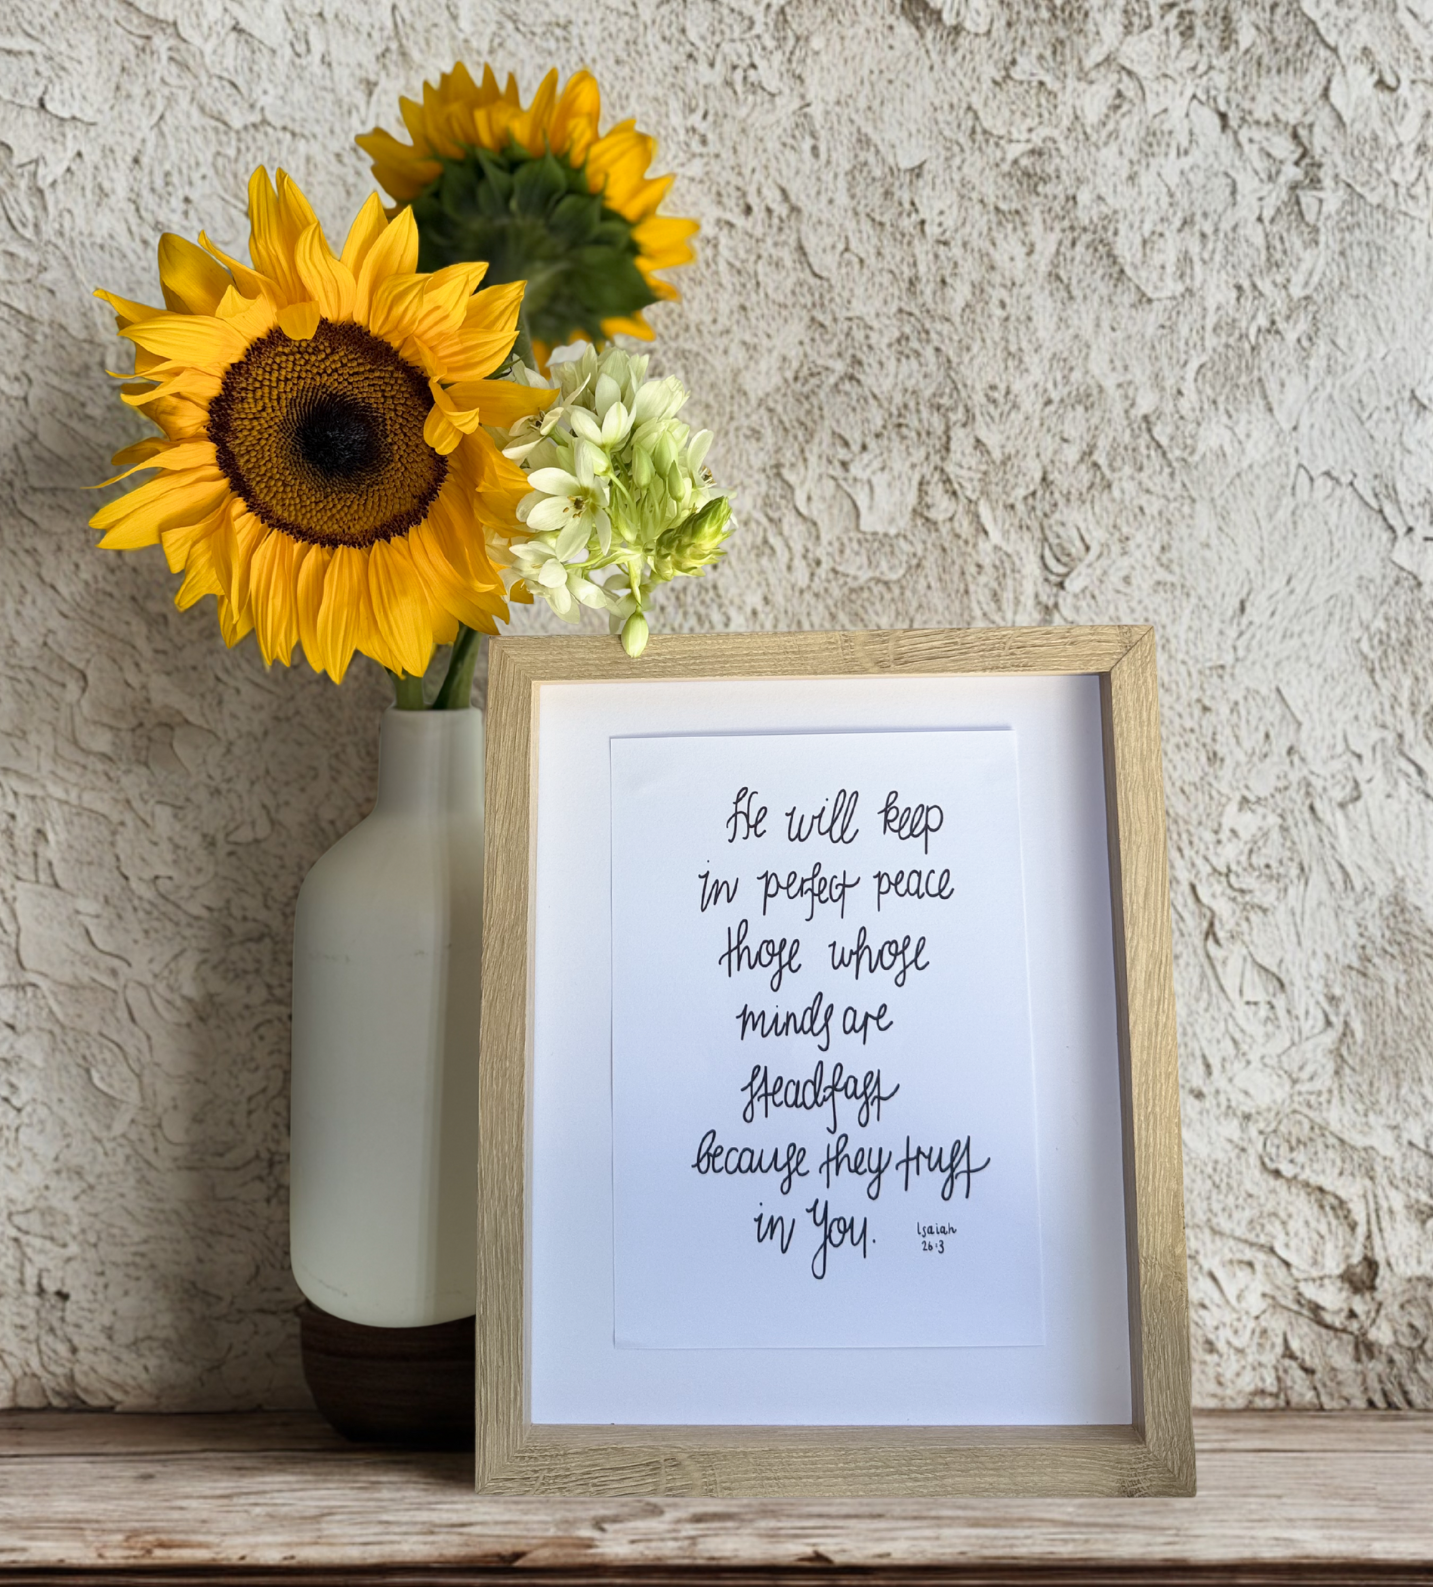 He will keep
in perfect peace
those whose
minds are
steadfast
because they trust
in You.
Isaiah
26:3